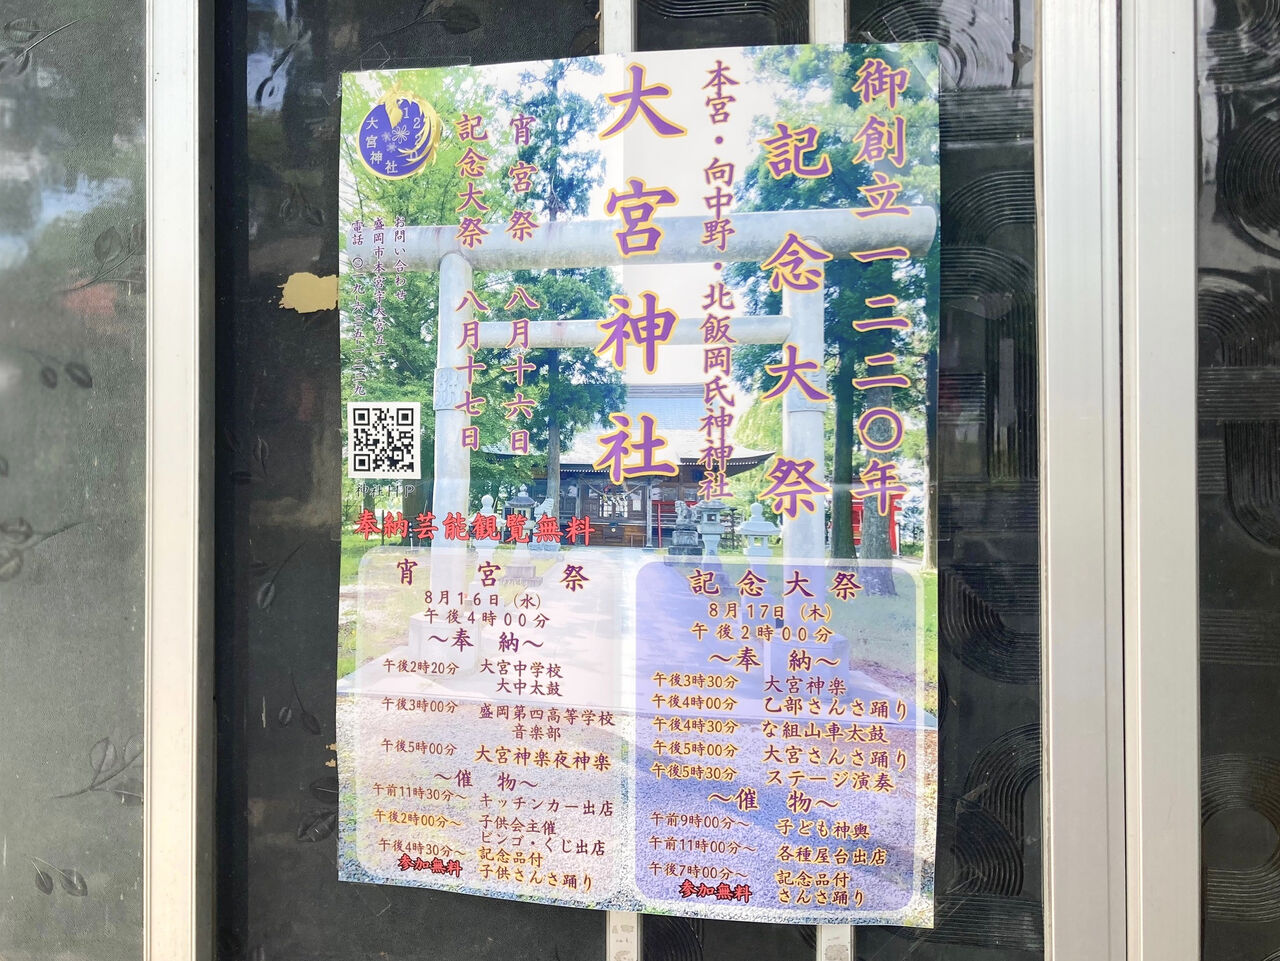 御創立一二二〇年
記念大祭
本宮・向中野・北飯岡氏神神社
大宮神社
宵宮祭 八月十六日
記念大祭 八月十七日
122
大宮神社
お問い合わせ
盛岡市本宮字大宮五一
神社HP
奉納芸能観覧無料
宵宮祭
8月16日(水)
午後4時00分
～奉 納～
午後2時20分 大宮中学校
大中太鼓
午後3時00分 盛岡第四高等学校
音楽部
午後5時00分 大宮神楽夜神楽
～催 物～
午前11時30分～ キッチンカー出店
午後2時00分～ 子供会主催
ビンゴ・くじ出店
午後4時30分～ 記念品付
参加無料 子供さんさ踊り
記念大祭
8月17日(木)
午後2時00分
～奉 納～
午後3時30分 大宮神楽
午後4時00分 乙部さんさ踊り
午後4時30分 な組山車太鼓
午後5時00分 大宮さんさ踊り
午後5時30分 ステージ演奏
～催 物～
午前9時00分～ 子ども神輿
午前11時00分～ 各種屋台出店
午後7時00分～ 記念品付
参加無料 さんさ踊り